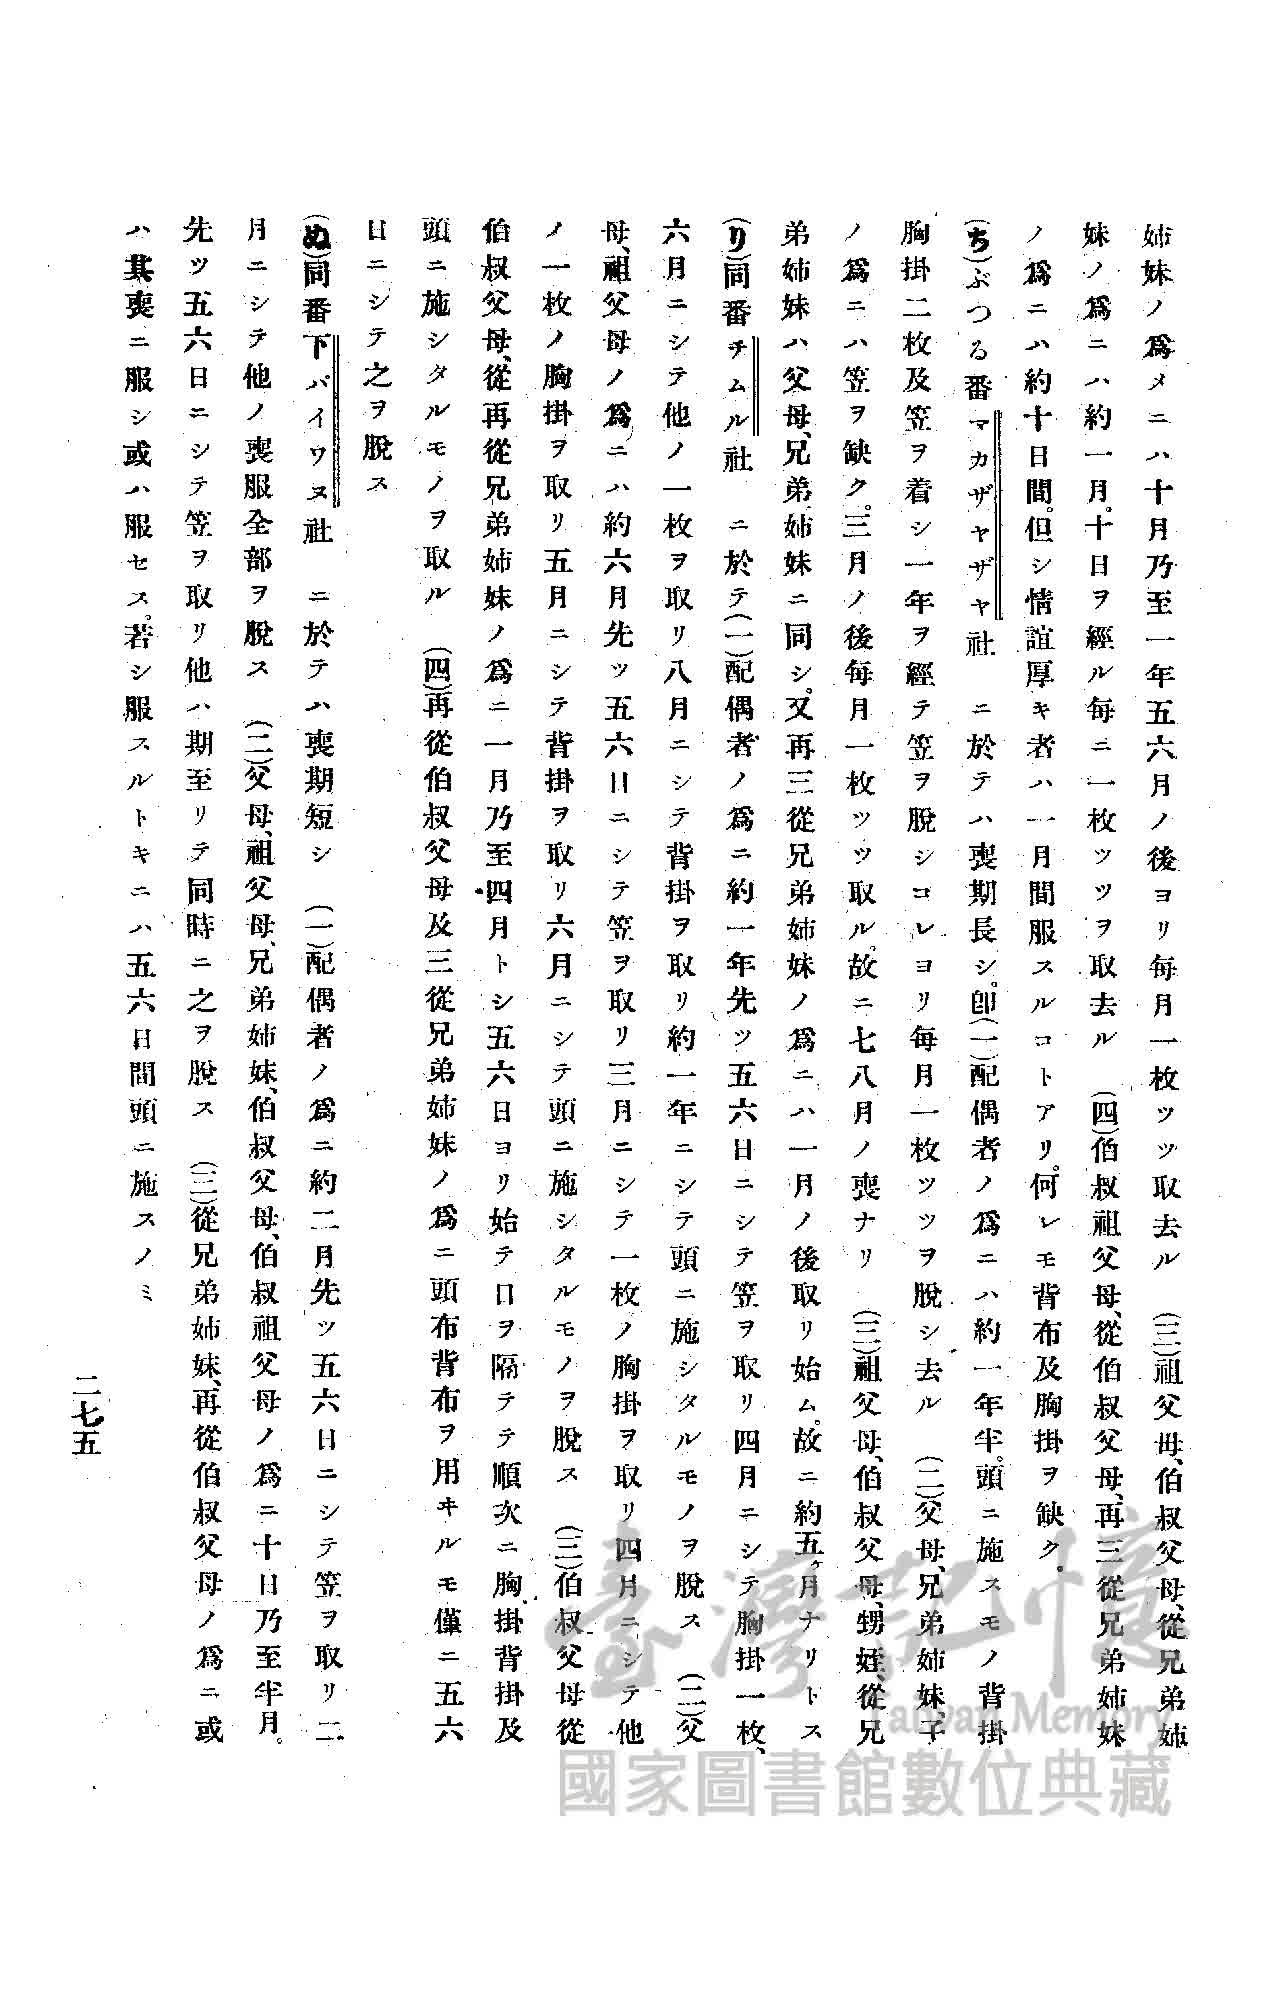 姉妹ノ爲メニハ十月乃至一年五六月ノ後ヨリ毎月一枚ツツ取去ル (三)祖父母、伯叔父母、從兄弟姉
妹ノ爲ニハ約一月。十日ヲ經ル毎ニ一枚ツツヲ取去ル (四)伯叔祖父母、從伯叔父母、再三從兄弟姉妹
ノ爲ニハ約十日間。但シ情誼厚キ者ハ一月間服スルコトアリ。何レモ背布及胸掛ヲ缺ク。
(ち)ぶつる番マカザヤザヤ社 ニ於テハ喪期長シ。卽(一)配偶者ノ爲ニハ約一年半。頭ニ施スモノ背掛
胸掛二枚及笠ヲ着シ一年ヲ經テ笠ヲ脫シコレヨリ毎月一枚ツツヲ脫シ去ル (二)父母、兄弟姉妹、子
ノ爲ニハ笠ヲ缺ク。三月ノ後毎月一枚ツツ取ル。故ニ七八月ノ喪ナリ (三)祖父母、伯叔父母、甥姪、從兄
弟姉妹ハ父母、兄弟姉妹ニ同シ。又再三從兄弟姉妹ノ爲ニハ一月ノ後取リ始ム。故ニ約五ヶ月ナリトス
(り)同番チムル社 ニ於テ(一)配偶者ノ爲ニ約一年先ツ五六日ニシテ笠ヲ取リ四月ニシテ胸掛一枚、
六月ニシテ他ノ一枚ヲ取リ八月ニシテ背掛ヲ取リ約一年ニシテ頭ニ施シタルモノヲ脫ス (二)父
母、祖父母ノ爲ニハ約六月先ツ五六日ニシテ笠ヲ取リ三月ニシテ一枚ノ胸掛ヲ取リ四月ニシテ他
ノ一枚ノ胸掛ヲ取リ五月ニシテ背掛ヲ取リ六月ニシテ頭ニ施シタルモノヲ脫ス (三)伯叔父母從
伯叔父母、從再從兄弟姉妹ノ爲ニ一月乃至四月トシ五六日ヨリ始テ日ヲ隔テテ順次ニ胸掛背掛及
頭ニ施シタルモノヲ取ル (四)再從伯叔父母及三從兄弟姉妹ノ爲ニ頭布背布ヲ用ヰルモ僅ニ五六
日ニシテ之ヲ脫ス
(ぬ)同番下パイワヌ社 ニ於テハ喪期短シ (一)配偶者ノ爲ニ約二月先ツ五六日ニシテ笠ヲ取リ二
月ニシテ他ノ喪服全部ヲ脫ス (二)父母、祖父母、兄弟姉妹、伯叔父母、伯叔祖父母ノ爲ニ十日乃至半月。
先ツ五六日ニシテ笠ヲ取リ他ハ期至リテ同時ニ之ヲ脫ス (三)從兄弟姉妹、再從伯叔父母ノ爲ニ或
ハ其喪ニ服シ或ハ服セス。若シ服スルトキニハ五六日間頭ニ施スノミ
二七五
臺灣記憶
Taiwan Memory
國家圖書館數位典藏